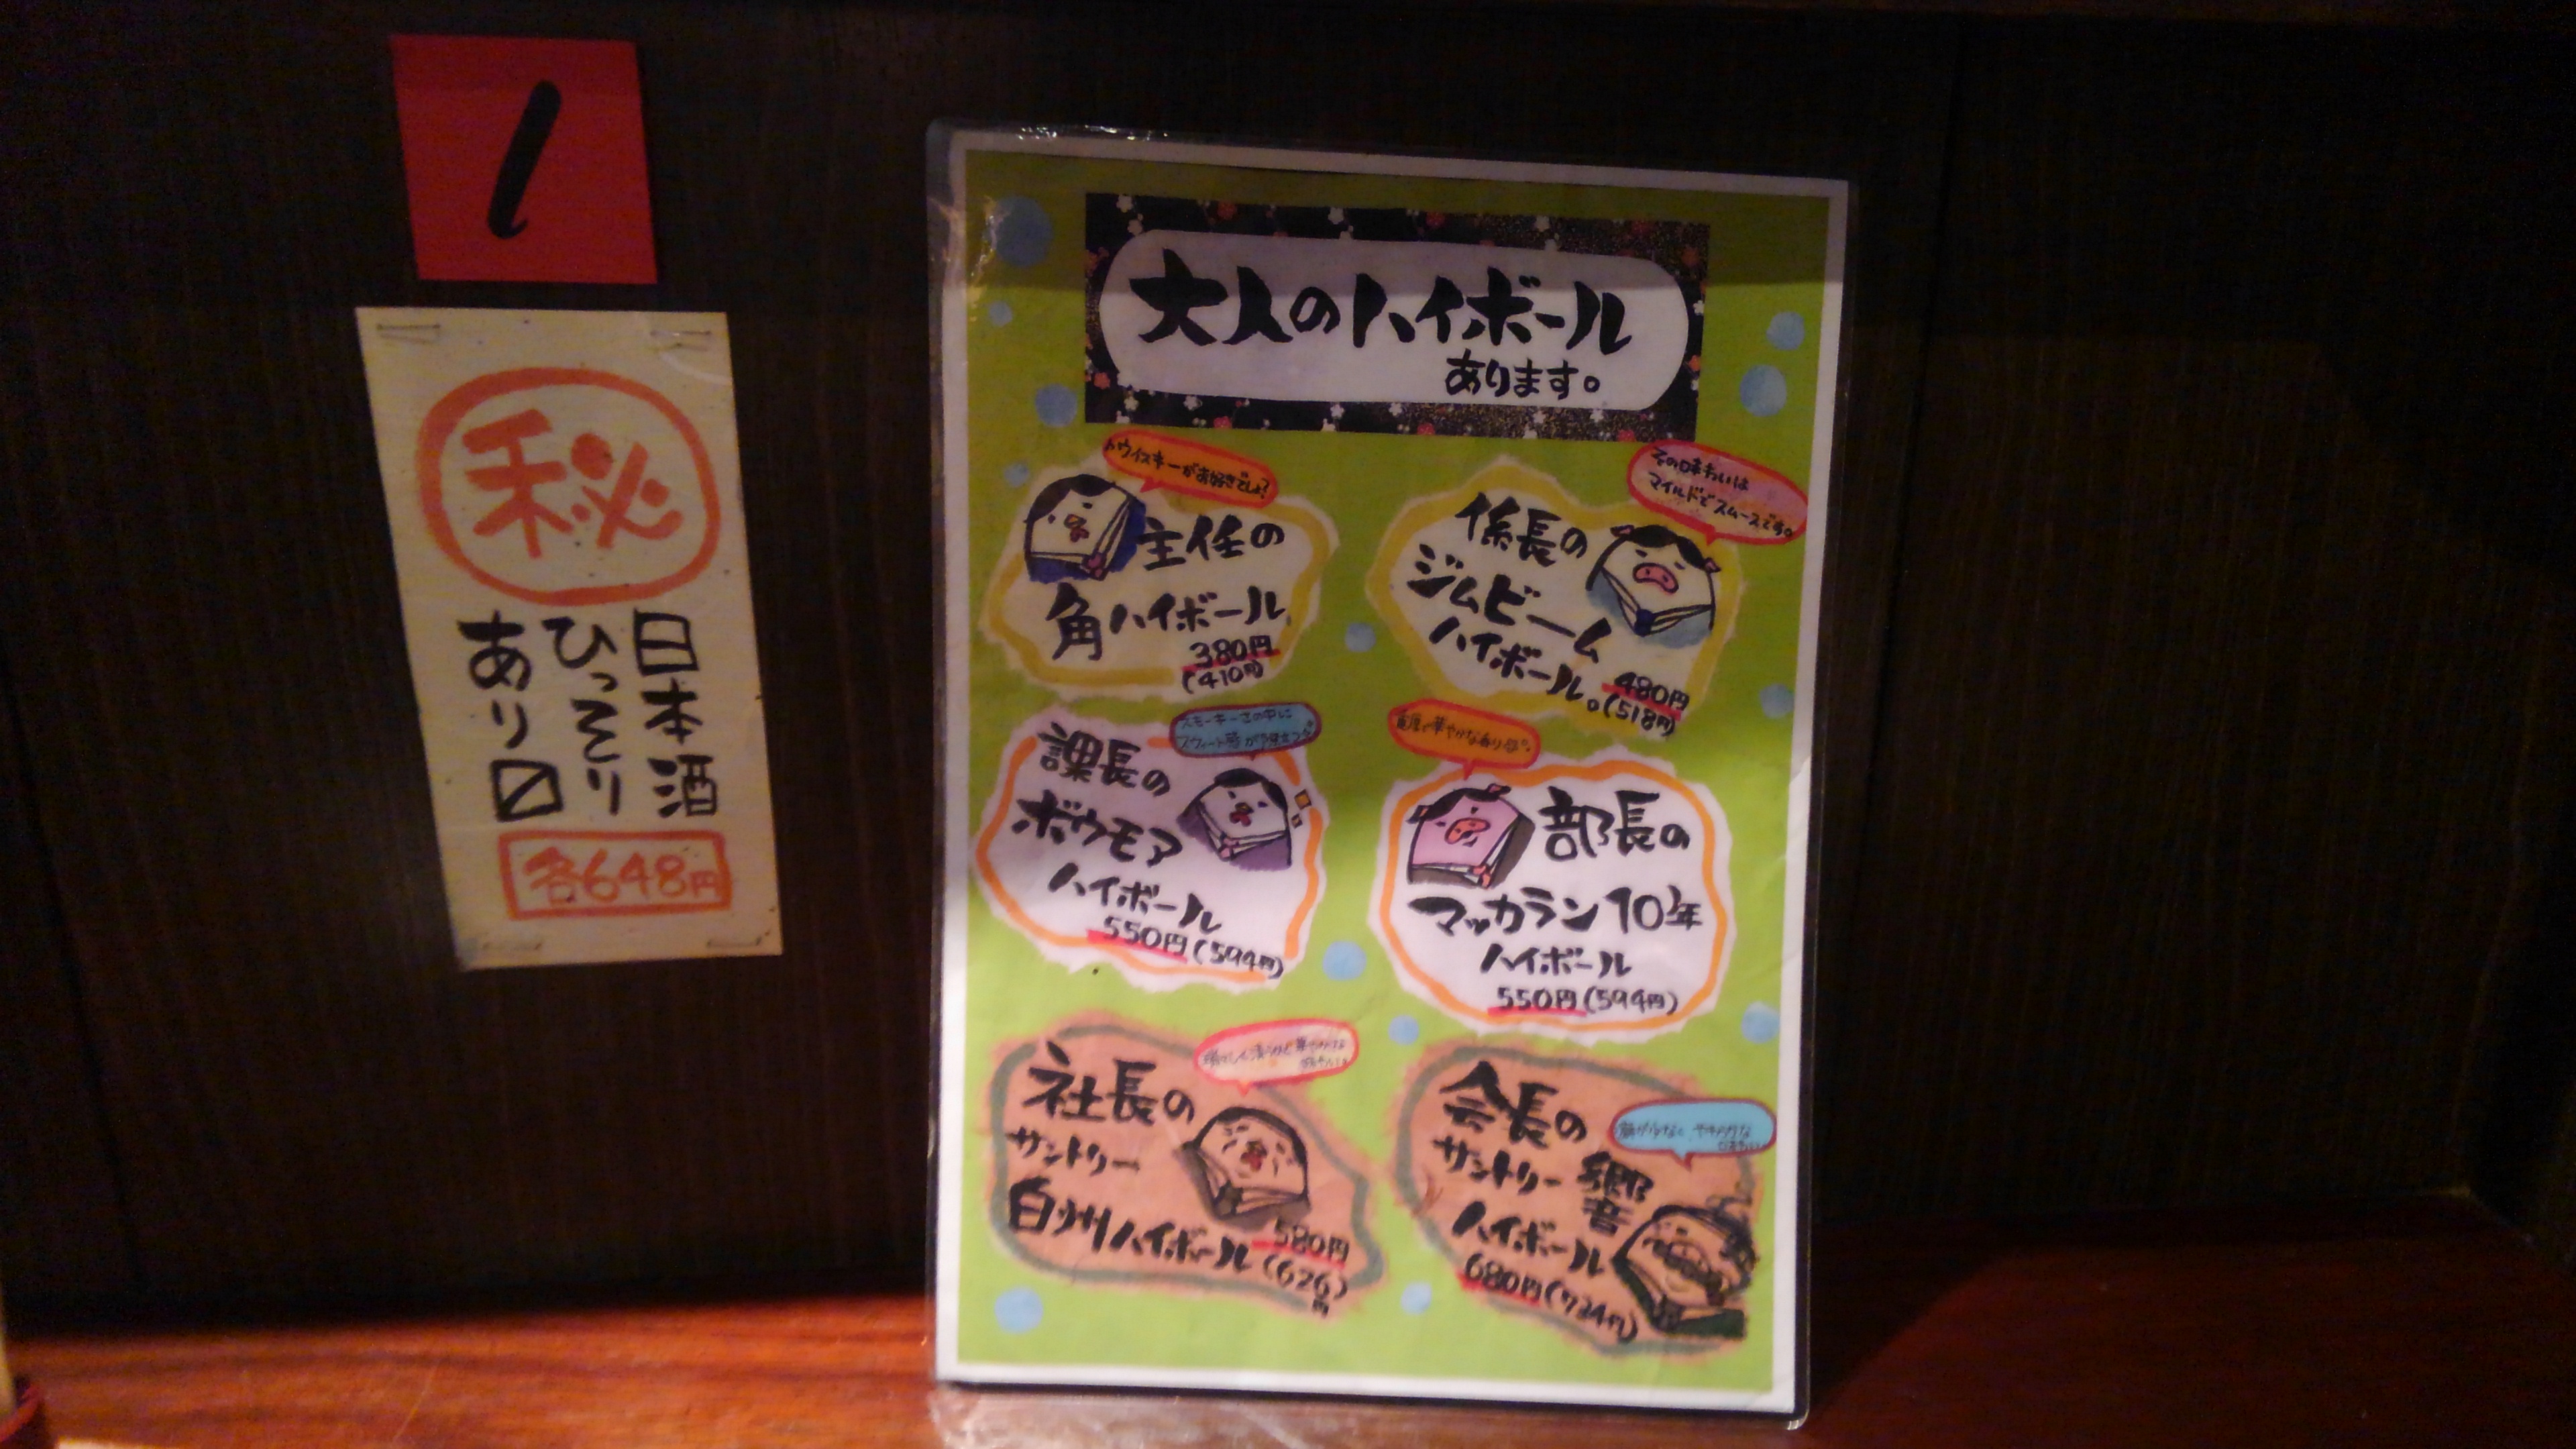 1
秘
日本酒
ひっそり
あり〼
各648円
大人のハイボール
あります。
ウイスキーがお好きでしょ?
主任の
角ハイボール
380円
(410円)
その味わいは
マイルドでスムースです。
係長の
ジムビーム
ハイボール。
480円
(518円)
スモーキーさの中に
課長の
ボウモア
ハイボール
550円(594円)
華やかな香り
部長の
マッカラン10年
ハイボール
550円(594円)
社長の
サントリー
白州ハイボール
580円
(626円)
会長の
サントリー 響
ハイボール
680円(734円)